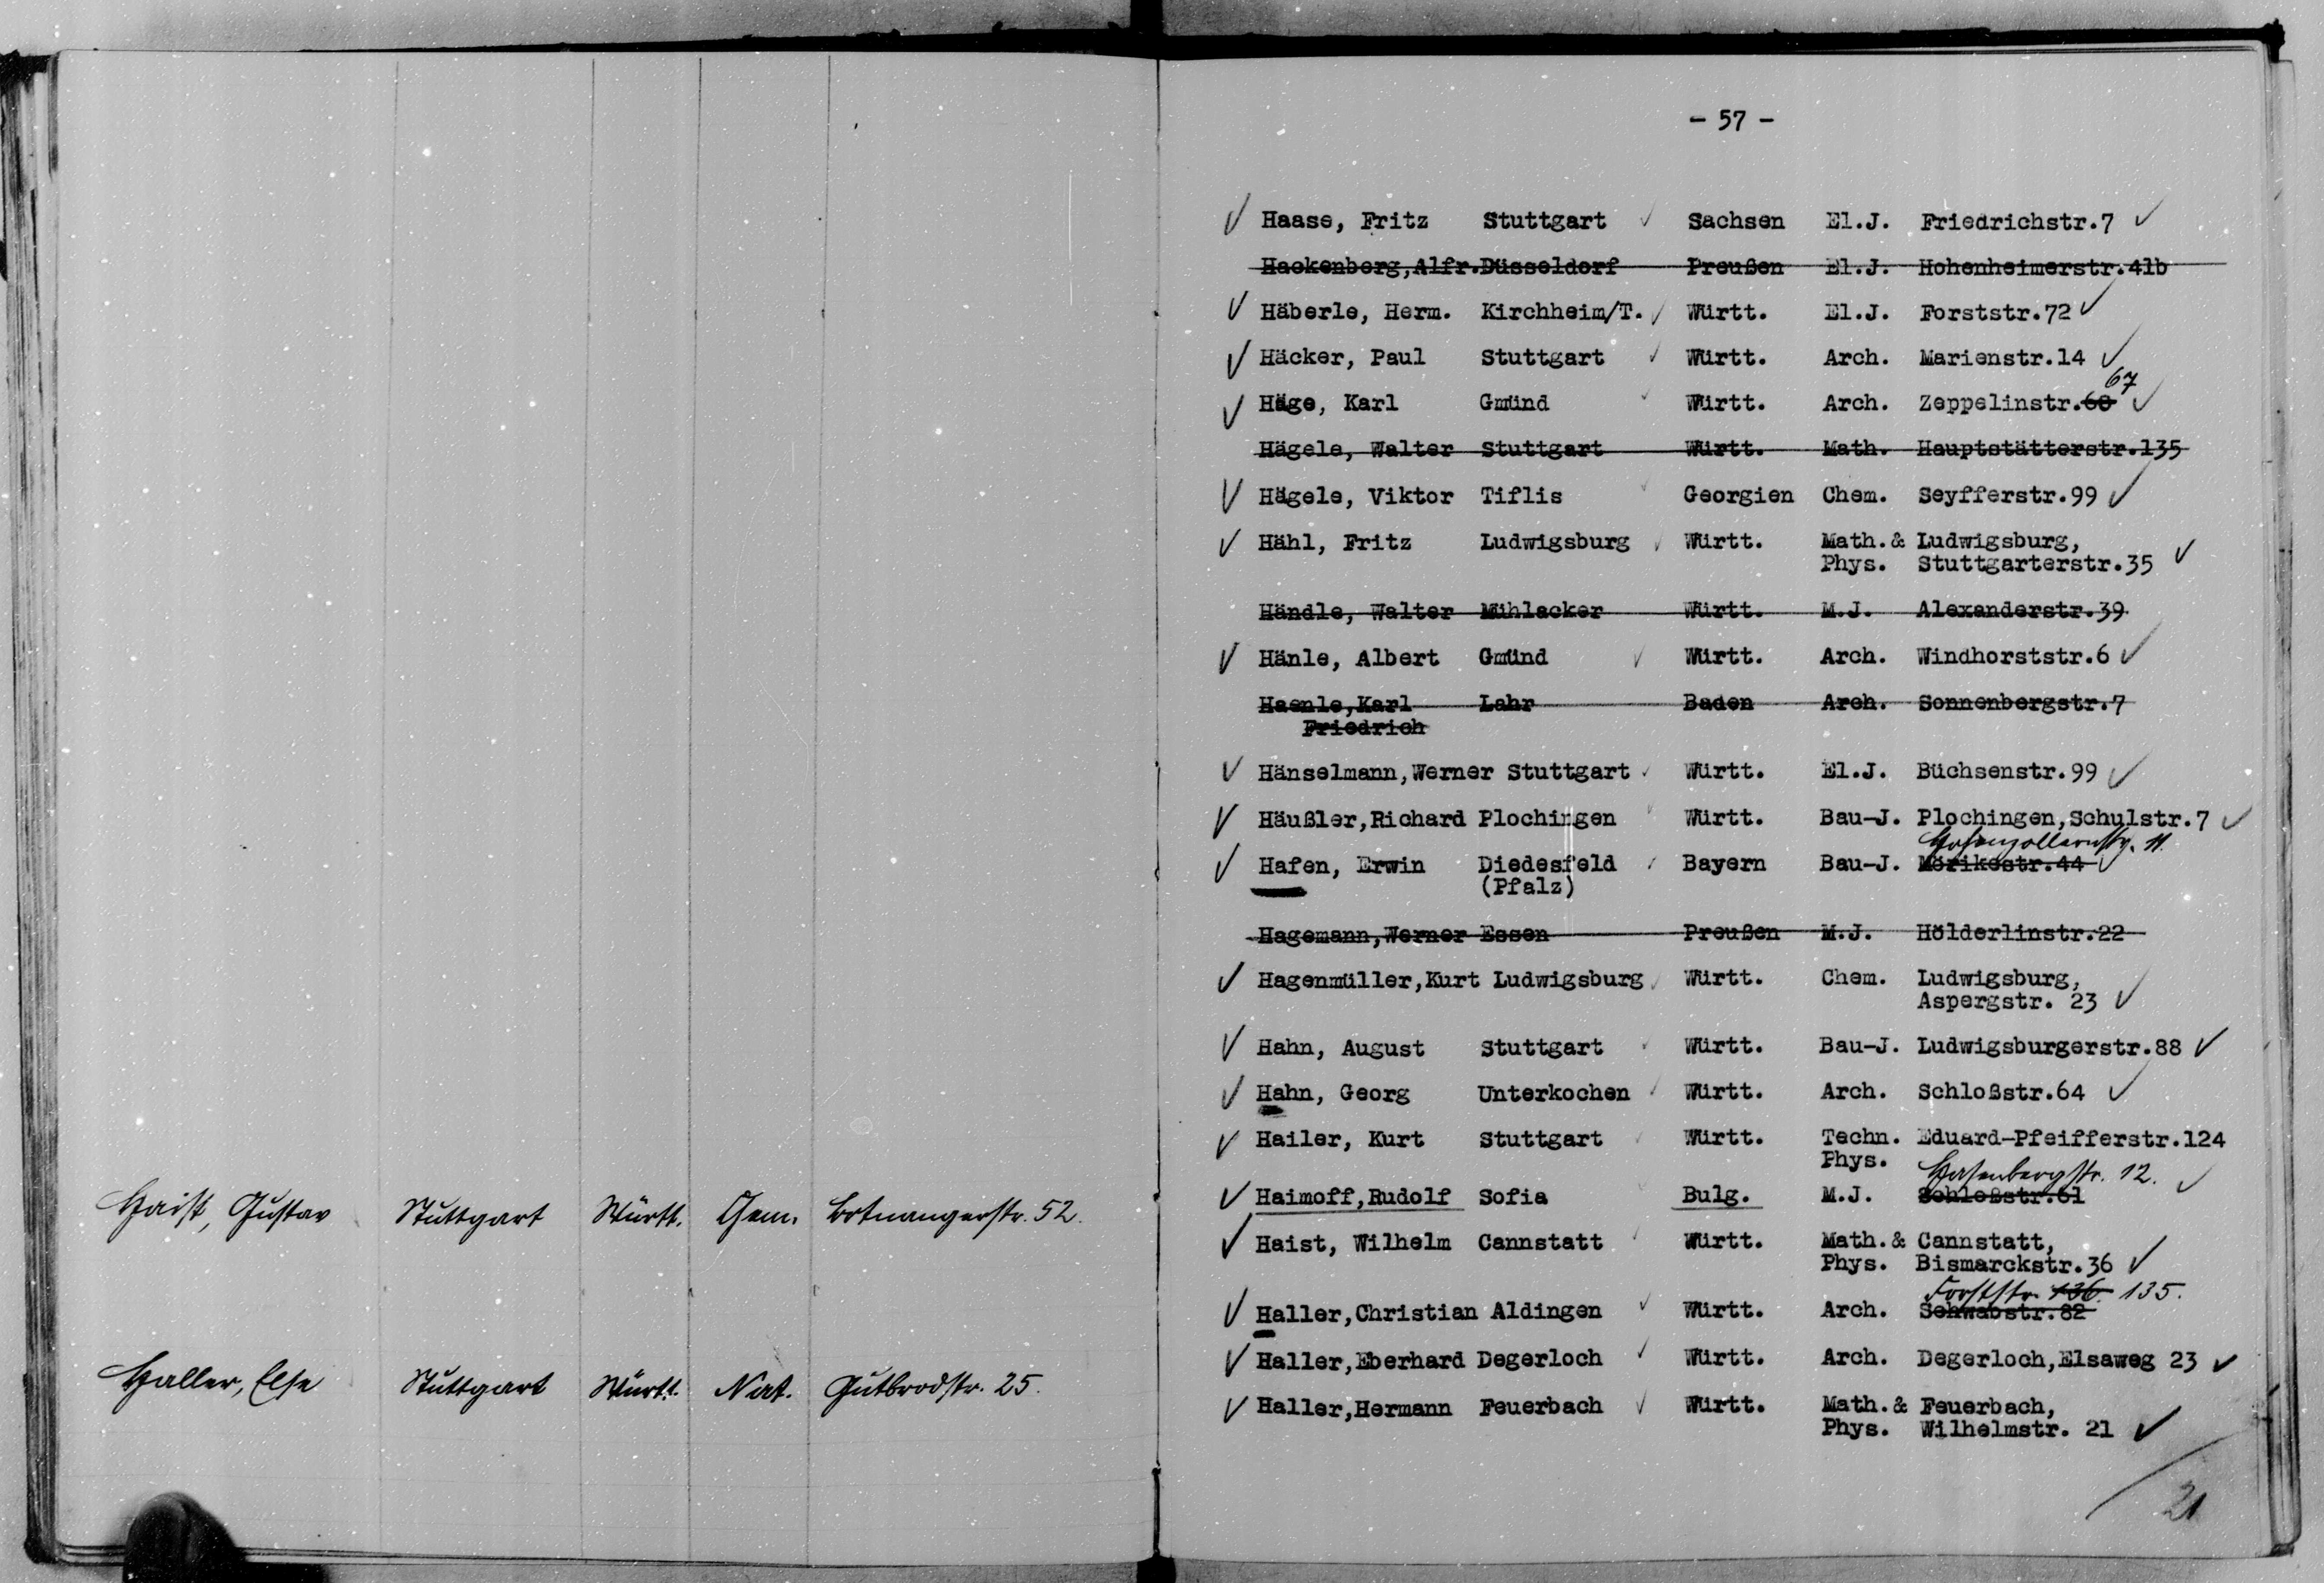 Haist, Gustav Stuttgart Württ. Chem. Botnangerstr. 52.
Haller, Else Stuttgart Württ. Nat. Gutbrodstr. 25.
- 57 -
Haase, Fritz Stuttgart Sachsen El.J. Friedrichstr.7
Hackenberg,Alfr. Düsseldorf Preußen El.J. Hohenheimerstr.41b
Häberle, Herm. Kirchheim/T. Württ. El.J. Forststr.72
Häcker, Paul Stuttgart Württ. Arch. Marienstr.14
67
Häge, Karl Gmünd Württ. Arch. Zeppelinstr.60
Hägele, Walter Stuttgart Württ. Math. Hauptstätterstr.135
Hägele, Viktor Tiflis Georgien Chem. Seyfferstr.99
Hähl, Fritz Ludwigsburg Württ. Math.& Ludwigsburg,
Phys. Stuttgarterstr.35
Händle, Walter Mühlacker Württ. M.J. Alexanderstr.39
Hänle, Albert Gmünd Württ. Arch. Windhorststr.6
Haenle,Karl Lahr Baden Arch. Sonnenbergstr.7
Friedrich
Hänselmann,Werner Stuttgart Württ. El.J. Büchsenstr.99
Häußler,Richard Plochingen Württ. Bau-J. Plochingen,Schulstr.7
Hohenzollernstr. 11.
Hafen, Erwin Diedesfeld Bayern Bau-J. Mörikestr.44
(Pfalz)
Hagemann,Werner Essen Preußen M.J. Hölderlinstr.22
Hagenmüller,Kurt Ludwigsburg Württ. Chem. Ludwigsburg,
Aspergstr. 23
Hahn, August Stuttgart Württ. Bau-J. Ludwigsburgerstr.88
Hahn, Georg Unterkochen Württ. Arch. Schloßstr.64
Hailer, Kurt Stuttgart Württ. Techn. Eduard-Pfeifferstr.124
Phys.
Hasenbergstr. 12.
Haimoff,Rudolf Sofia Bulg. M.J. Schloßstr.61
Haist, Wilhelm Cannstatt Württ. Math.& Cannstatt,
Phys. Bismarckstr.36
Forststr. 136. 135.
Haller,Christian Aldingen Württ. Arch. Schwabstr.82
Haller,Eberhard Degerloch Württ. Arch. Degerloch,Elsaweg 23
Haller,Hermann Feuerbach Württ. Math.& Feuerbach,
Phys. Wilhelmstr. 21
21